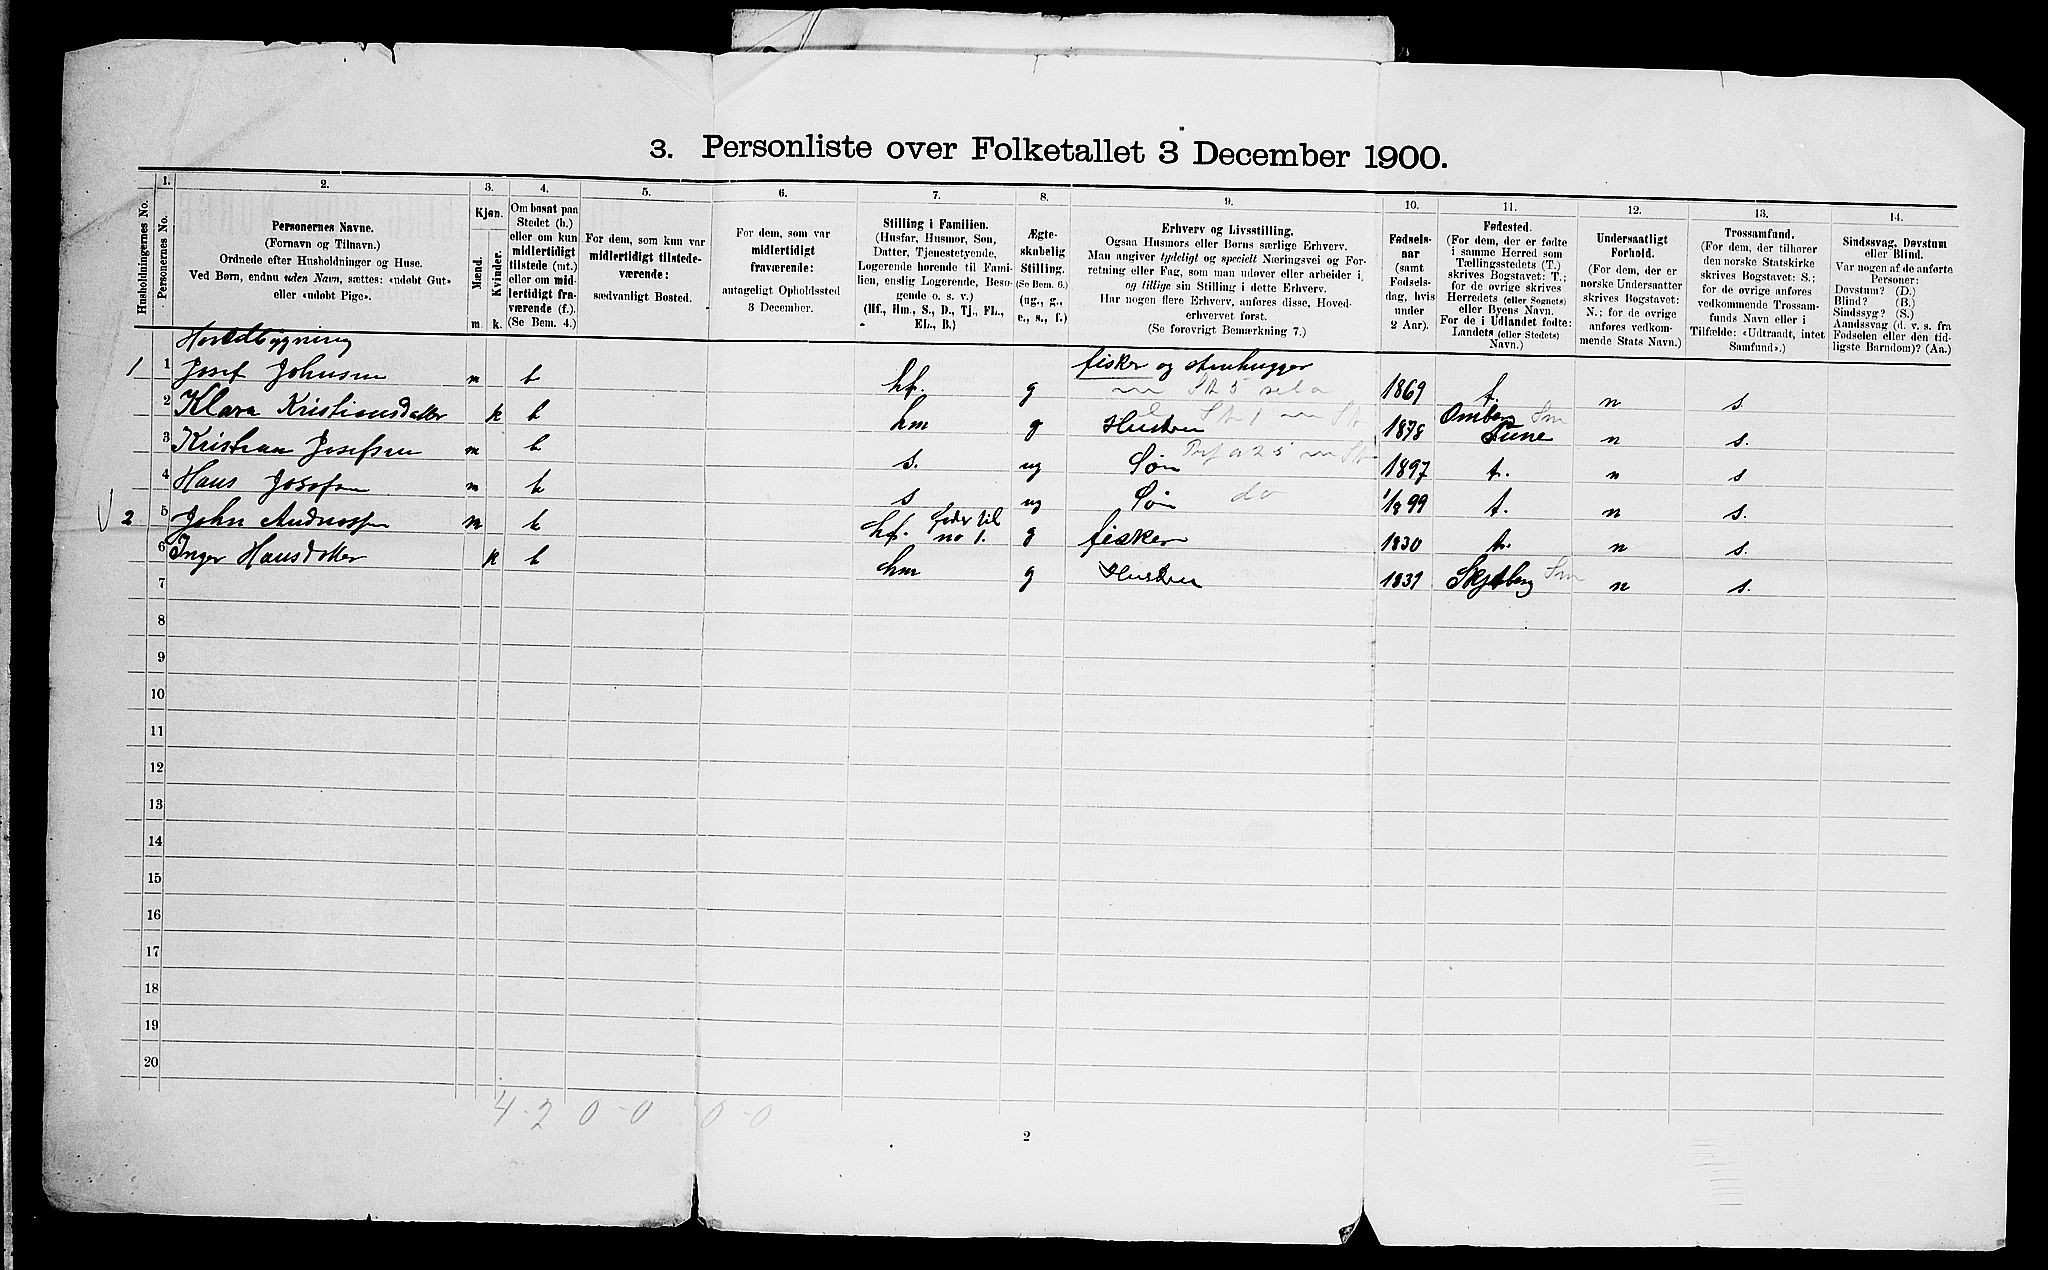 3. Personliste over Folketallet 3 December 1900.
Husholdningernes No.
1.
Personernes No.
2.
Personernes Navne.
(Fornavn og Tilnavn.)
Ordnede efter Husholdninger og Huse.
Ved Børn, endnu uden Navn, sættes: «udøbt Gut»
eller «udøbt Pige».
3.
Kjøn.
Mænd.
Kvinder.
m. k.
4.
Om bosat paa
Stedet (b.)
eller om kun
midlertidigt
tilstede (mt.)
eller om mid-
lertidigt fra-
værende (f.).
(Se Bem. 4.)
5.
For dem, som kun var
midlertidigt tilstede-
værende:
sædvanligt Bosted.
6.
For dem, som var
midlertidigt
fraværende:
antageligt Opholdssted
3 December.
7.
Stilling i Familien.
(Husfar, Husmor, Søn,
Datter, Tjenestetyende,
Logerende hørende til Fami-
lien, enslig Logerende, Besø-
gende o. s. v.)
(Hf., Hm., S., D., Tj., FL.,
EL., B.)
8.
Ægte-
skabelig
Stilling.
(Se Bem. 6.)
(ug., g.,
e., s., f.)
9.
Erhverv og Livsstilling.
Ogsaa Husmors eller Børns særlige Erhverv.
Man angiver tydeligt og specielt Næringsvei og For-
retning eller Fag, som man udøver eller arbeider i,
og tillige sin Stilling i dette Erhverv.
Har nogen flere Erhverv, anføres disse, Hoved-
erhvervet først.
(Se forøvrigt Bemærkning 7.)
10.
Fødsels-
aar
(samt
Fødsels-
dag, hvis
under
2 Aar).
11.
Fødested.
(For dem, der er fødte
i samme Herred som
Tællingsstedets (T.)
skrives Bogstavet: T.;
for de øvrige skrives
Herredets (eller Sognets)
eller Byens Navn.
For de i Udlandet fødte:
Landets (eller Stedets)
Navn.)
12.
Undersaatligt
Forhold.
(For dem, der er
norske Undersaatter
skrives Bogstavet:
N.; for de øvrige
anføres vedkom-
mende Stats Navn.)
13.
Trossamfund.
(For dem, der tilhører
den norske Statskirke
skrives Bogstavet: S.;
for de øvrige anføres
vedkommende Trossam-
funds Navn eller i
Tilfælde: «Udtraadt, intet
Samfund».)
14.
Sindssvag, Døvstum
eller Blind.
Var nogen af de anførte
Personer:
Døvstum? (D.)
Blind? (B.)
Sindssyg? (S.)
Aandssvag (d. v. s. fra
Fødselen eller den tid-
ligste Barndom)? (Aa.)
Hovedbygning
1 1 Josef Johnsen m b hf. g fisker og stenhugger 1869 t. n s.
2 Klara Kristiansdatter k b hm g Hustru 1878 Tune n s.
3 Kristian Josefsen m b s. ug Søn 1897 t. n s
4 Hans Josefsen m b s ug Søn do 1/8 99 t. n s.
2 5 John Andreassen m b hf. fader til no 1. g fisker 1830 t. n s.
6 Inger Hansdatter k b hm g Hustru 1839 Skjeberg Sm n s.
7
8
9
10
11
12
13
14
15
16
17
18
19
20
4-2 0-0 0-0
2